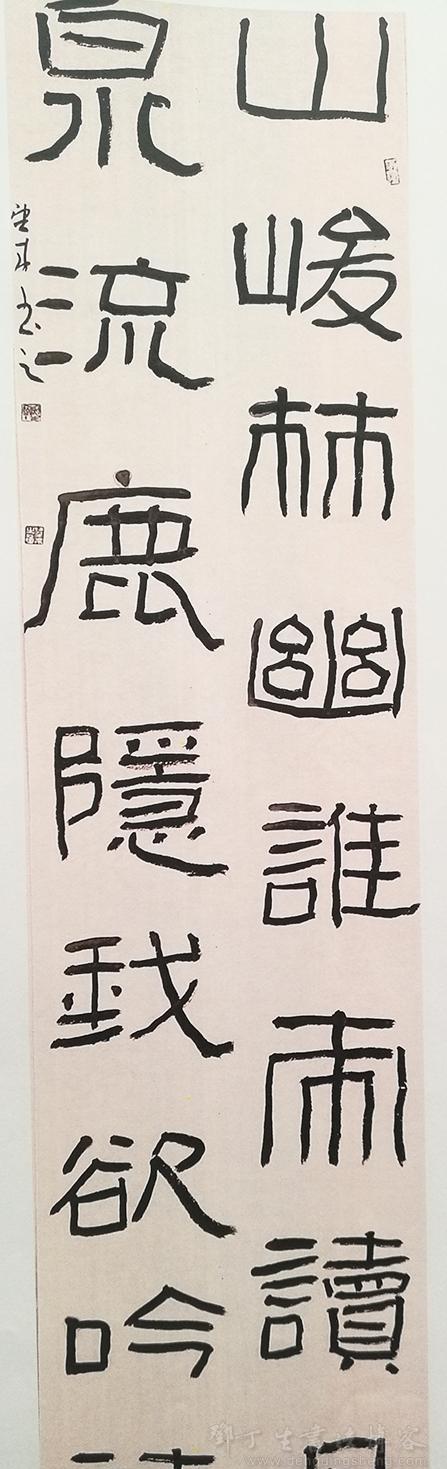 山峻林幽誰讀
泉流鹿隱我欲吟
鄧丁生書法博客